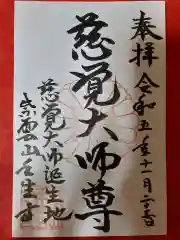 奉拝 令和五年十一月二十五日
慈覚大師尊
慈覚大師誕生地
紫雲山壬生寺